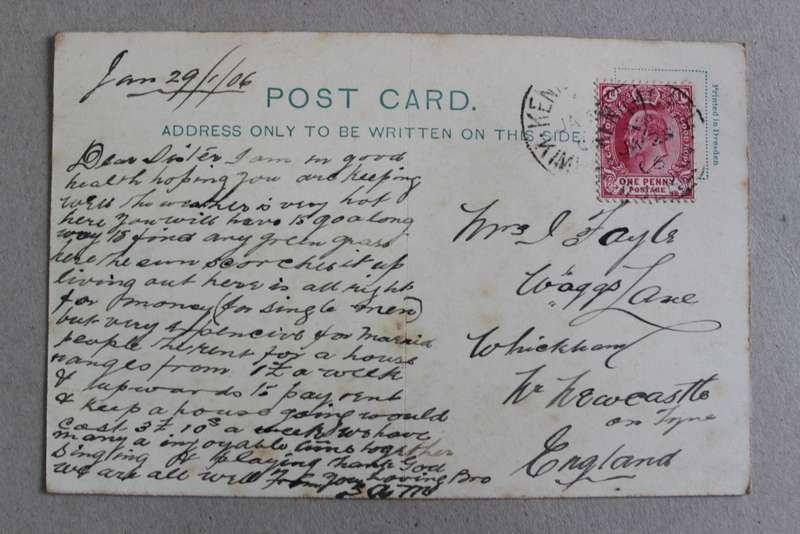 Jan 29/1/06
POST CARD.
ADDRESS ONLY TO BE WRITTEN ON THIS SIDE.
Printed in Dresden
ONE PENNY
POSTAGE
Dear Sister I am in good
health hoping you are keeping
well the weather is very hot
here you will have to go along
way to find any green grass
here the sun scorches it up
living out here is all right
for money (for single men)
but very expencive for married
people the rent for a house
ranges from 1£ a week
& upwards to pay rent
& keep a house going would
cost 3£ 10s a week we have
many a injoyable time together
singling & playing thank God
we are all well From your loving Bro
Mrs J Foyle
Waggs Lane
Whickham
Nr Newcastle
on Tyne
England